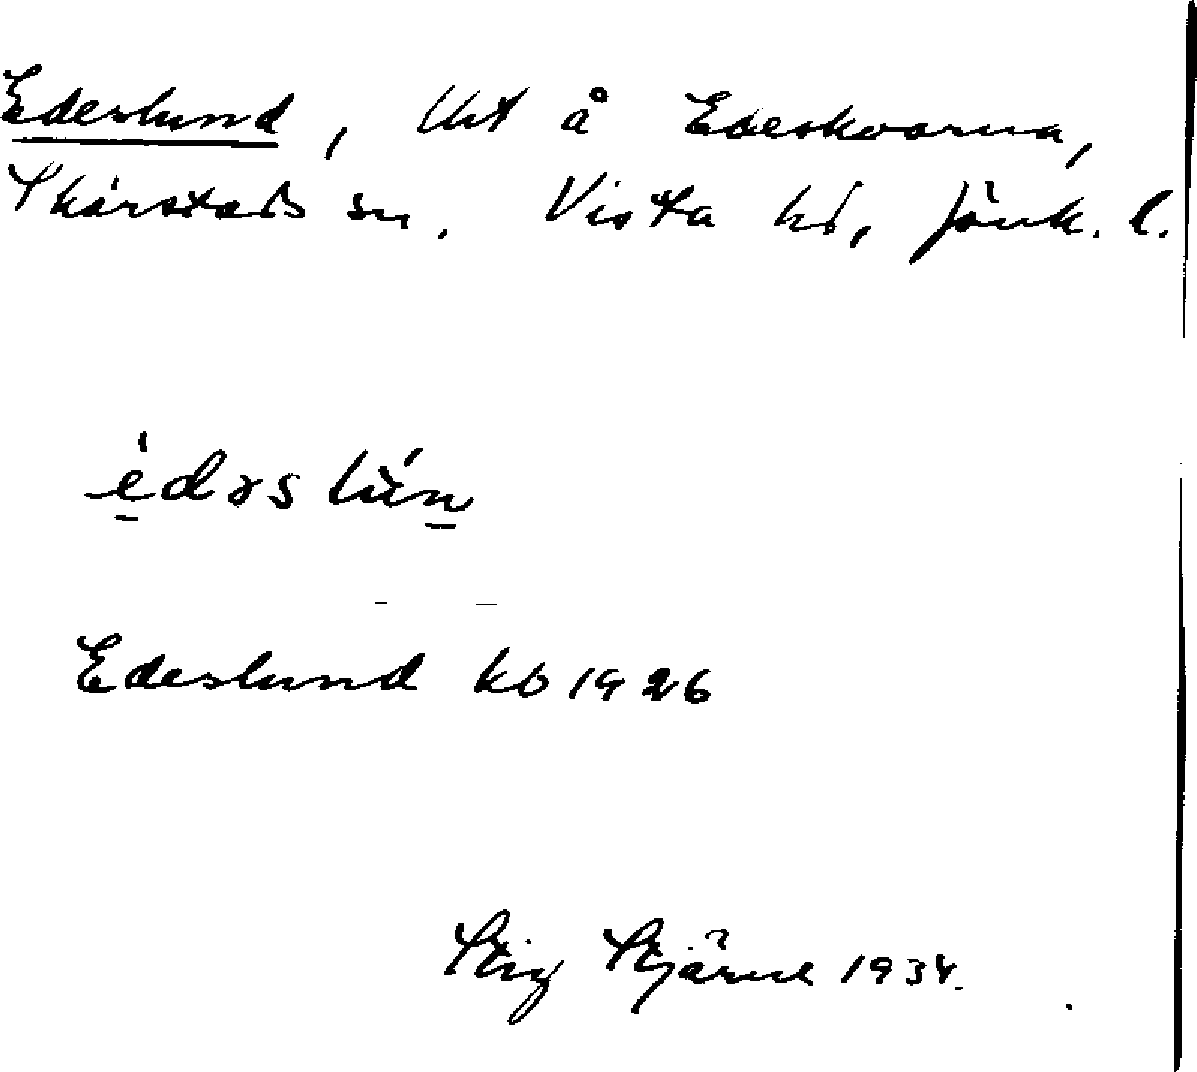 Ederslund, Uet å Edeskvarna,
Skärstads sn. Vista hd, Jönk. l.
èdəslún
Edeslund kb 1926
Stig Stjärne 1934.